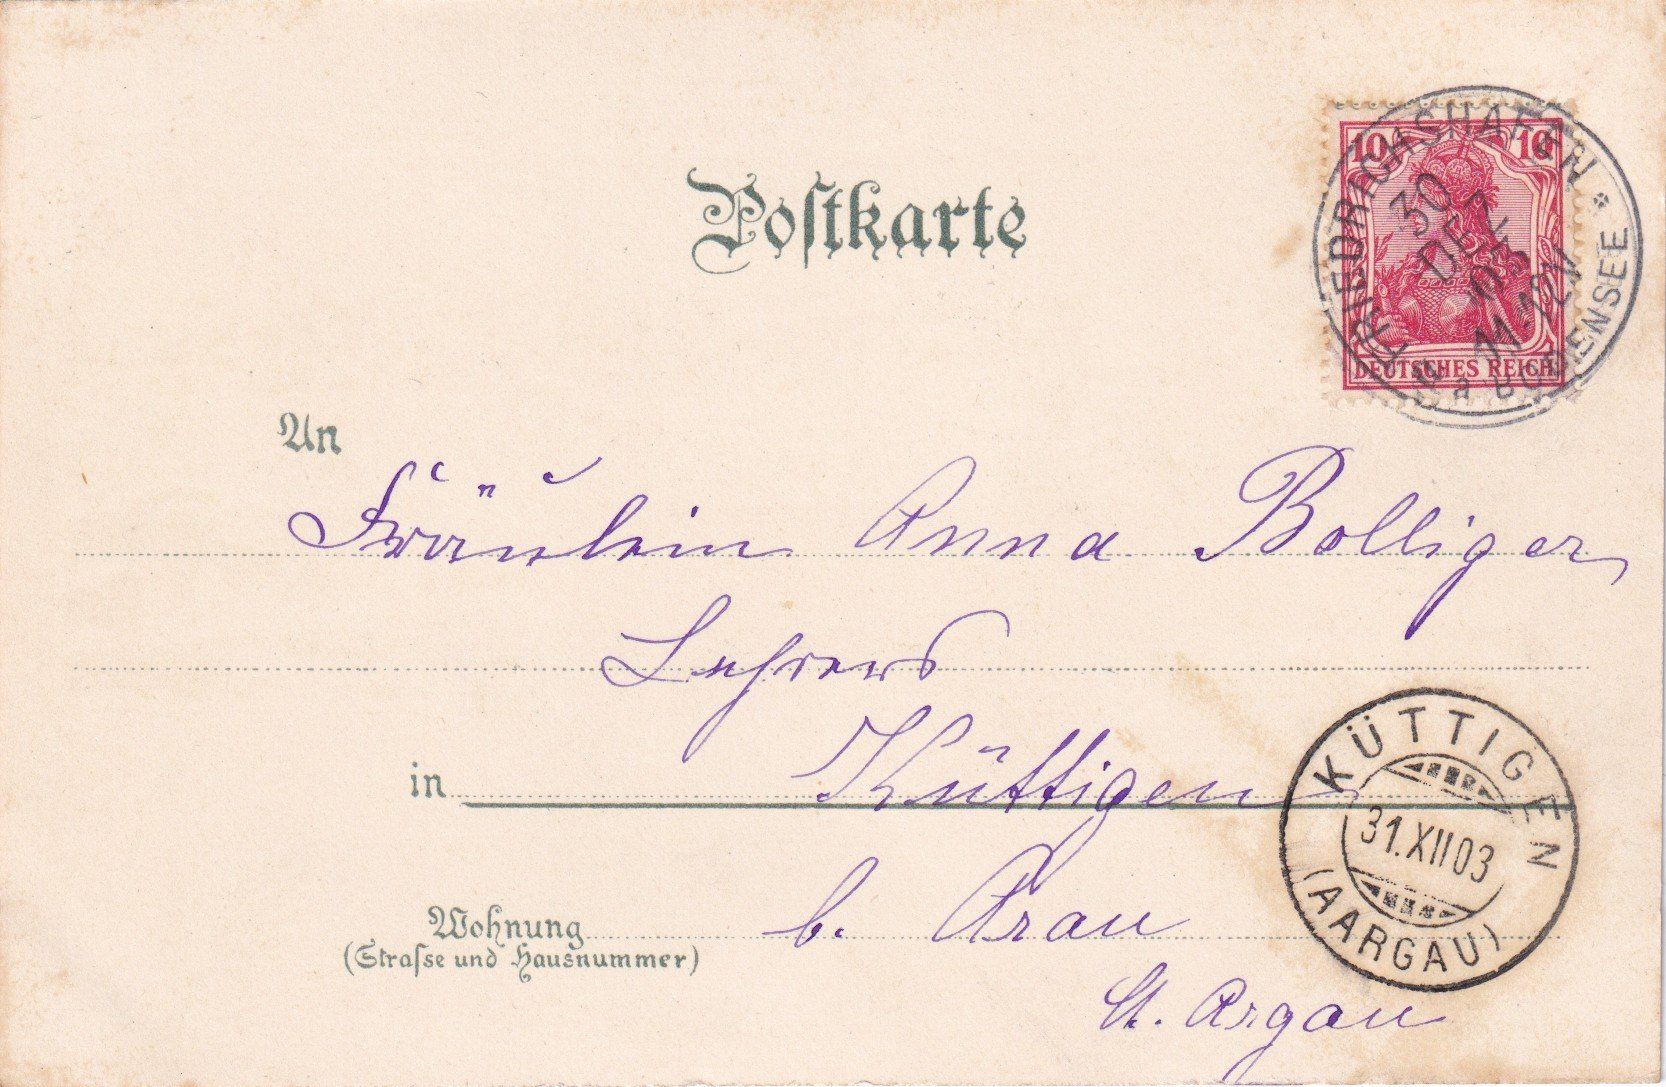 Postkarte
10 10
DEUTSCHES REICH
FRIEDRICHSHAFEN * a BODENSEE
30
DEZ
03
11-12N
An
Fräulein Anna Bolliger
Lehrers
in Küttigen
Wohnung b. Arau
(Strasse und Hausnummer)
Argau
KÜTTIGEN
31.XII 03
(AARGAU)